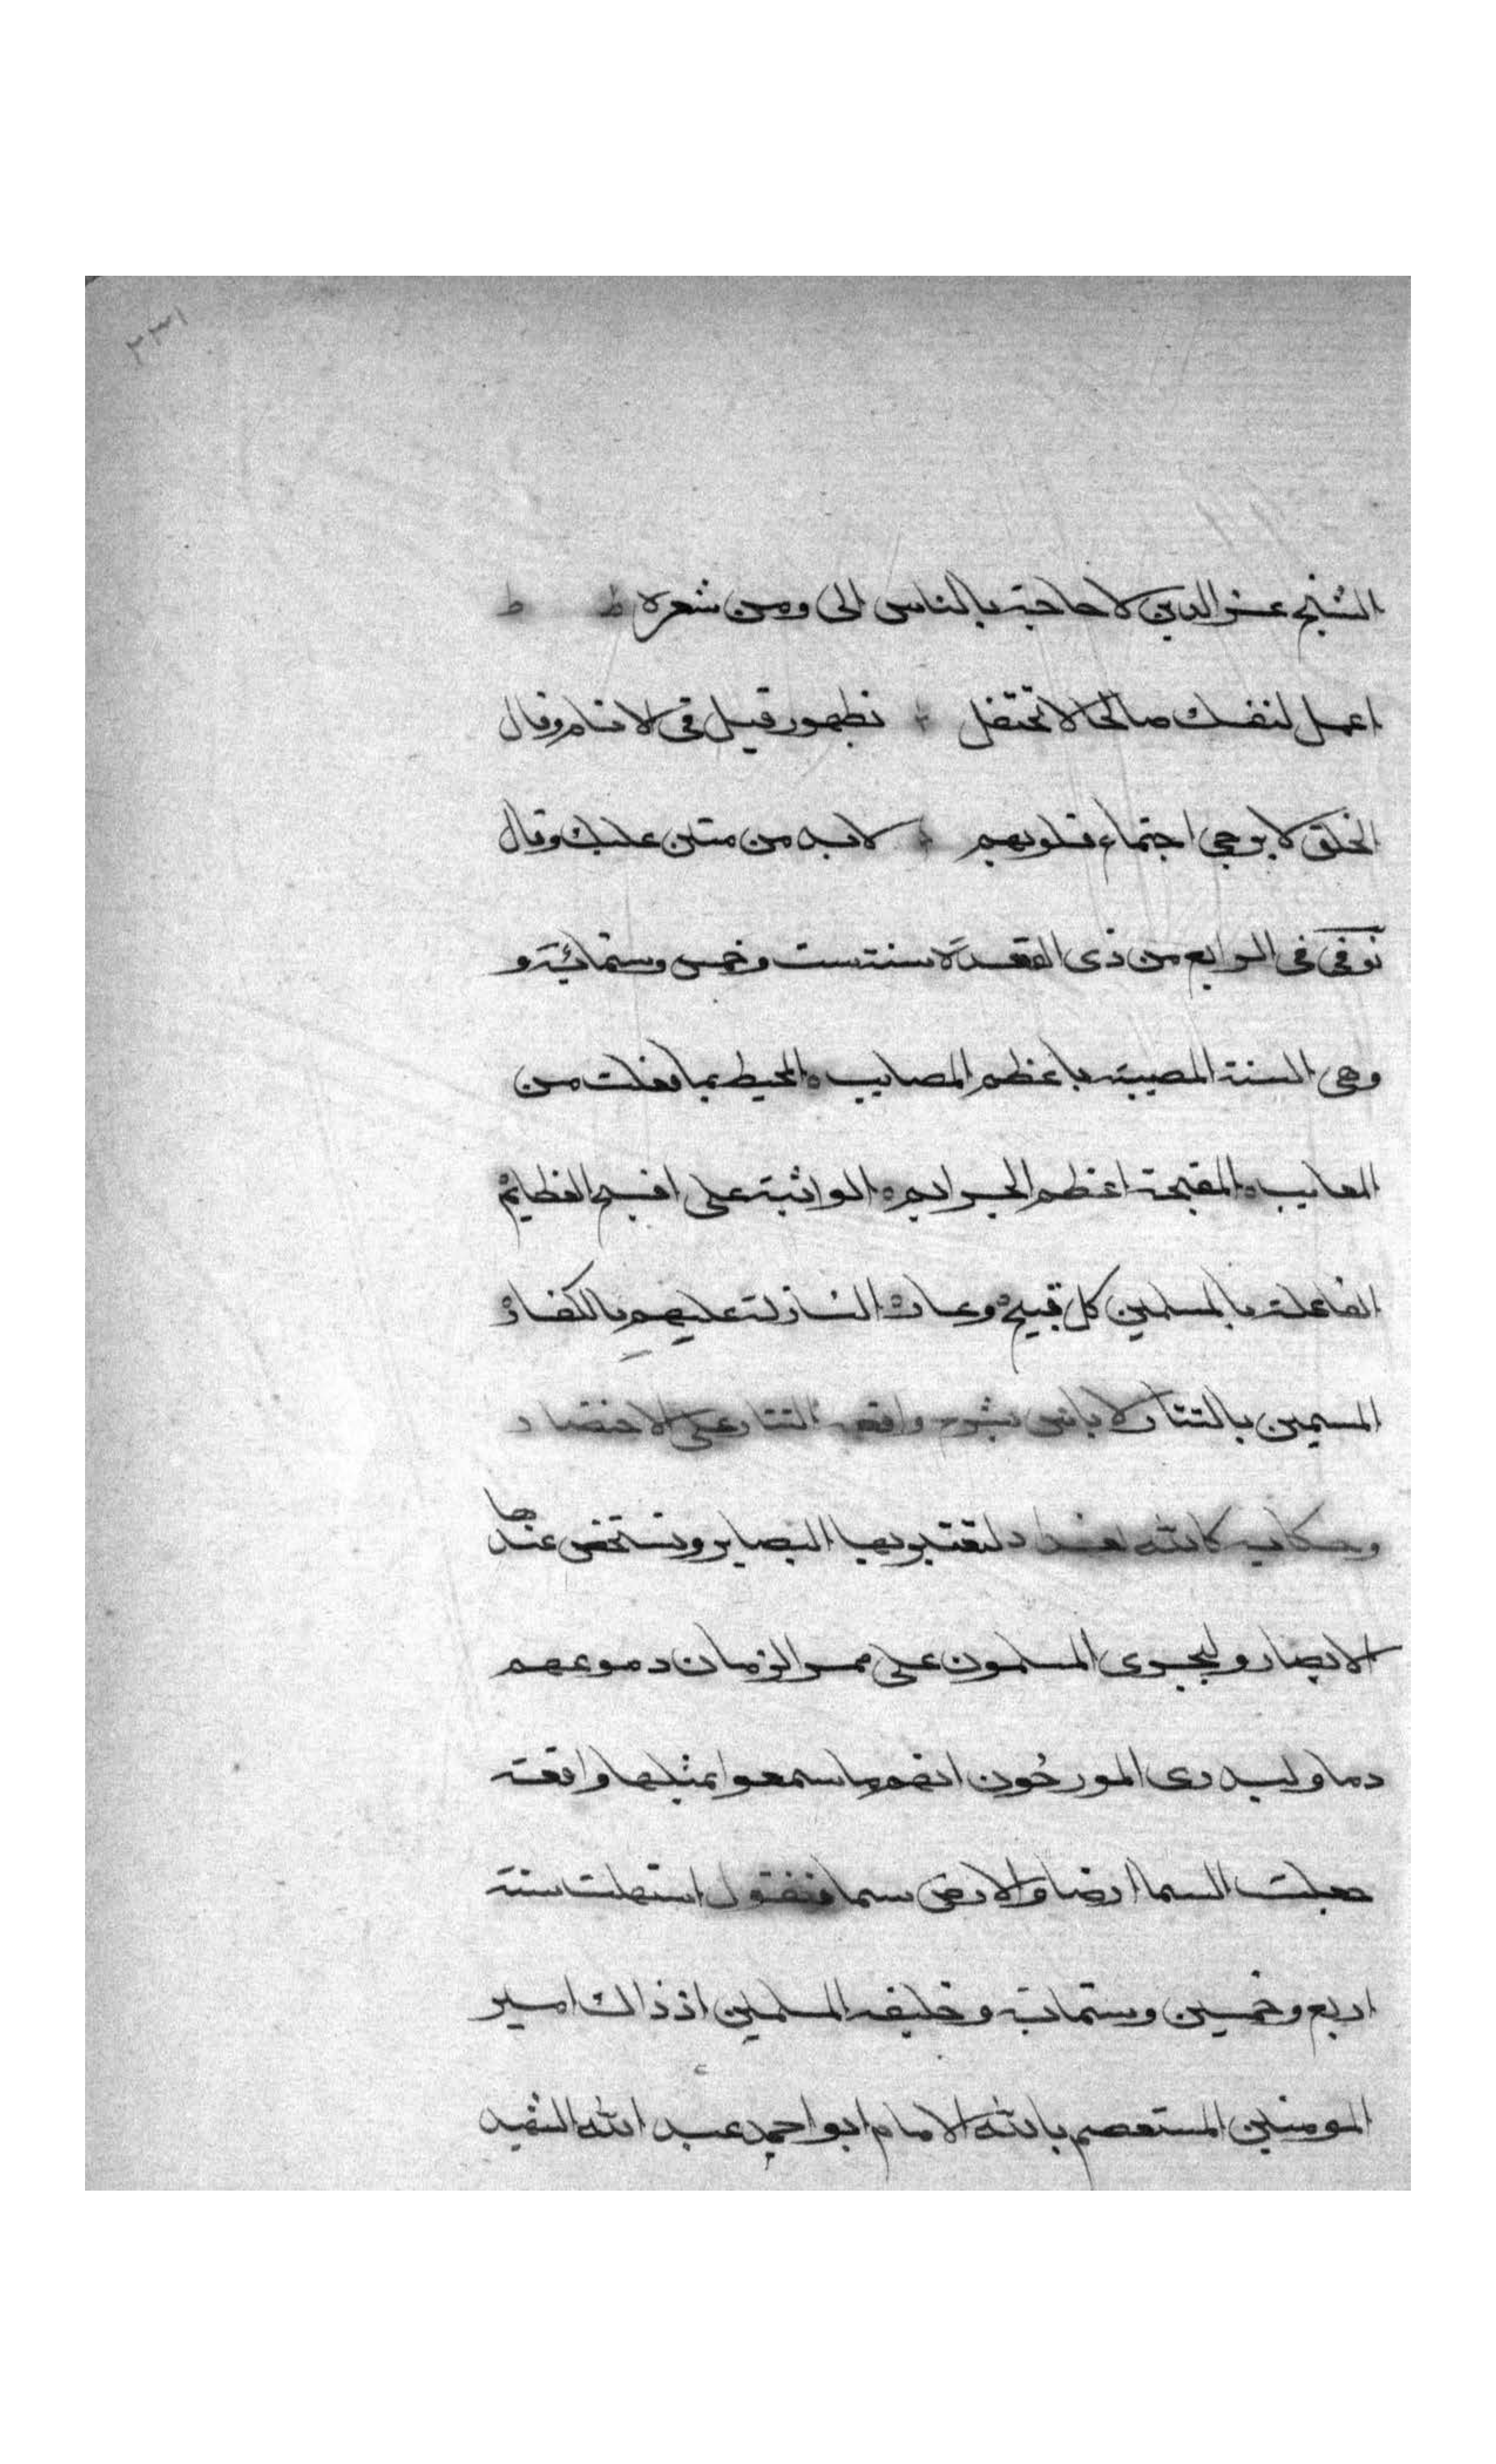 ٢٣١
الشيخ عز الدين لا حاجة بالناس الى ومن شعره ط ط
اعمل لنفسك صالحا لا تحتفل بظهور قيل في الانام وقال
الخلق لا يرجى اجتماع قلوبهم لابد من مثن عليك وقال
توفى فى الرابع من ذى القعدة سنة ست وخمس وستمائة و
وهى السنة المصيبة باعظم المصايب المحيط بما فعلت من
المعايب المقبحة اعظم الجرايم الواثبة على اقبح العظايم
الفاعلة بالمسلمين كل قبيح وعار النازلة عليهم بالكفار
المسيمين بالتتار لا باس بشرح واقعة التتار على الاختصار
وحكاية كائنة بغداد لتعتبر بها البصاير وتشخص عندها
الابصار وليجرى المسلمون على ممر الزمان دموعهم
دما وليدرى المورخون انهم ما سمعوا بمثلها واقعة
جعلت السما ارضا والارض سما فنقول استهلت سنة
اربع وخمسين وستماية وخليفة المسلمين اذ ذاك امير
المومنين المستعصم بالله الامام ابو احمد عبد الله الشهيد